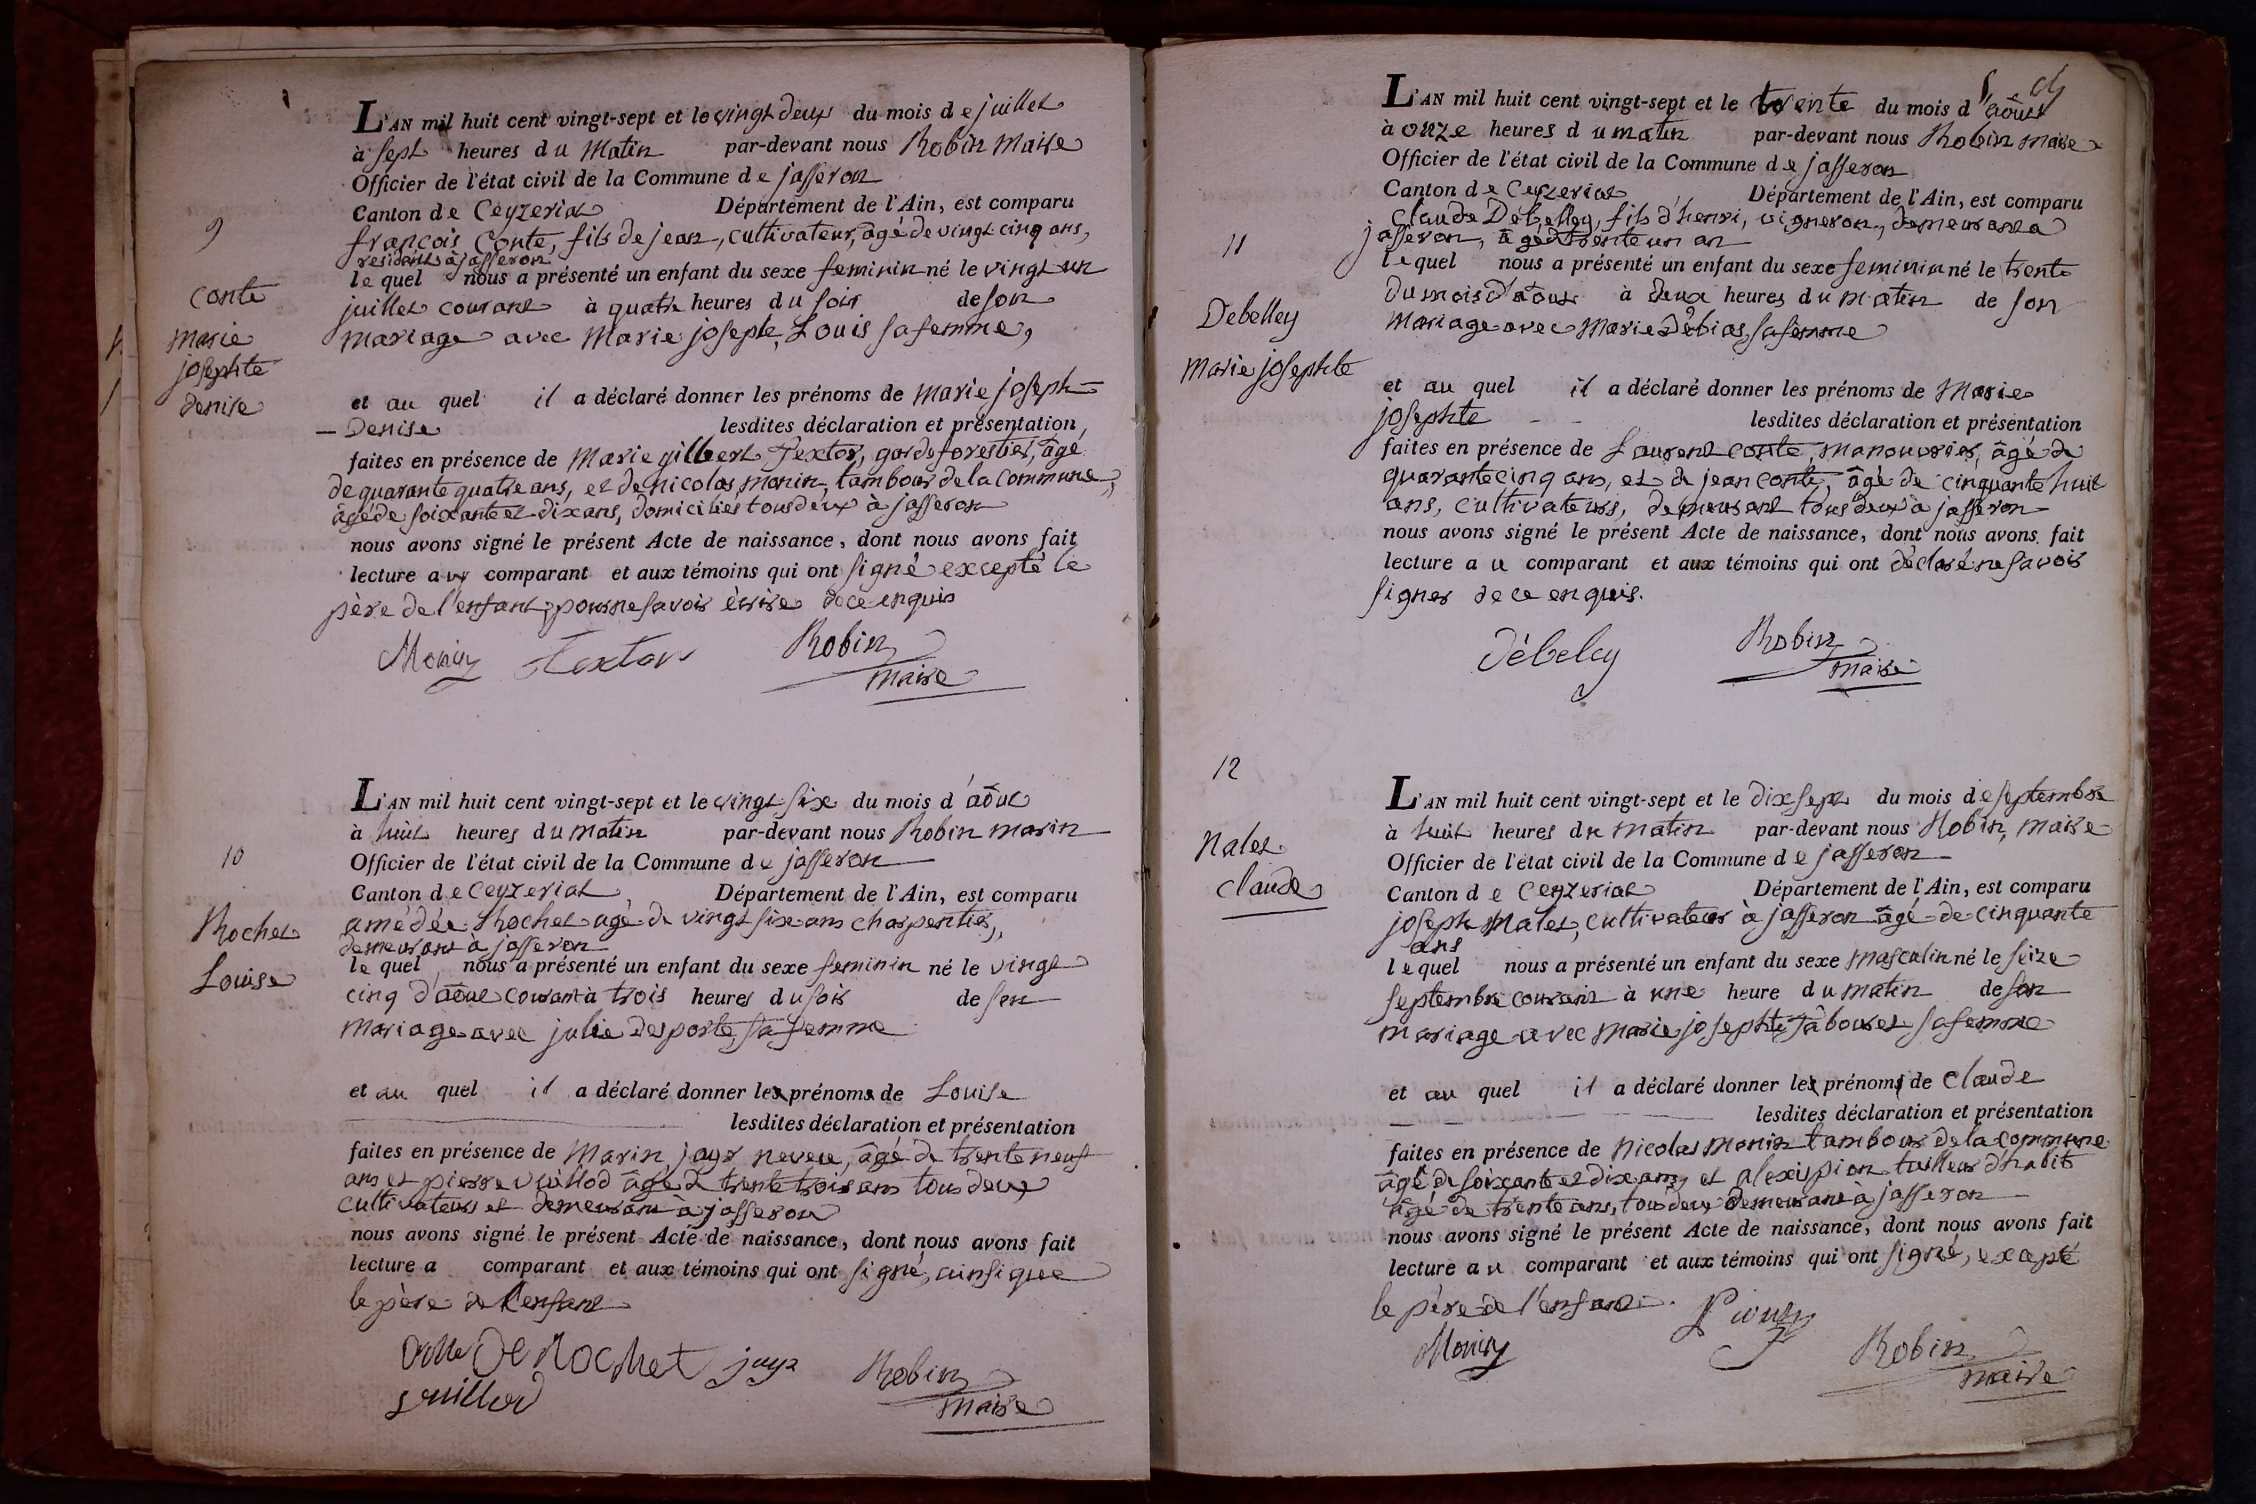 9
Conte
Marie
josephte
denise
L'AN mil huit cent vingt-sept et le vingt deux du mois de juillet
à sept heures du Matin par-devant nous Robin Maire
Officier de l'état civil de la Commune de jasseron
Canton de Ceyzeriat Département de l'Ain, est comparu
françois Conte, fils de jean, cultivateur, âgé de vingt cinq ans,
residant à jasseron
le quel nous a présenté un enfant du sexe feminin né le vingt un
juillet courant à quatre heures du soir de son
mariage avec Marie josephte Louis sa femme,
et au quel il a déclaré donner les prénoms de Marie joseph-
- Denise lesdites déclaration et présentation,
faites en présence de Marie gilbert Textor, garde forestier, âgé
de quarante quatre ans, et de nicolas monin, tambour de la Commune,
âgé de soixante et dix ans, domiciliés tous deux à jasseron
nous avons signé le présent Acte de naissance, dont nous avons fait
lecture aux comparant et aux témoins qui ont signé excepté le
père de l'enfant, pour ne savoir écrire de ce enquis
Monin Textor Robin
maire
10
Rochet
Louise
L'AN mil huit cent vingt-sept et le vingt six du mois d'août
à huit heures du matin par-devant nous Robin marin
Officier de l'état civil de la Commune de jasseron
Canton de Ceyzeriat Département de l'Ain, est comparu
amédée Rochet agé de vingt six ans charpentier,
demeurant à jasseron
le quel nous a présenté un enfant du sexe feminin né le vingt
cinq d'août courant à trois heures du soir de son
mariage avec julie desporte, sa femme
et au quel il a déclaré donner les prénoms de Louise
lesdites déclaration et présentation
faites en présence de Marin jayr neveu, âgé de trente neuf
ans et pierre vuillod âgé de trente trois ans tous deux
cultivateurs et demeurant à jasseron
nous avons signé le présent Acte de naissance, dont nous avons fait
lecture a comparant et aux témoins qui ont signé, ainsi que
le père de l'enfant
Rochet jayr Robin
vuillod maire
11
Debelley
Marie josephte
L'AN mil huit cent vingt-sept et le trente du mois d'août
à onze heures du matin par-devant nous Robin maire
Officier de l'état civil de la Commune de jasseron
Canton de Ceyzeriat Département de l'Ain, est comparu
Claude Debelley, fils d'henri, vigneron, demeurant a
jasseron, âgé de trente un an
le quel nous a présenté un enfant du sexe feminin né le trente
du mois d'août à deux heures du matin de son
mariage avec Marie Débias sa femme
et au quel il a déclaré donner les prénoms de Marie
josephte - - lesdites déclaration et présentation
faites en présence de Laurent conte, manouvrier, âgé de
quarante cinq ans, et de jean conte, âgé de cinquante huit
ans, cultivateurs, demeurant tous deux à jasseron
nous avons signé le présent Acte de naissance, dont nous avons fait
lecture au comparant et aux témoins qui ont déclaré ne savoir
signer de ce enquis.
Débeley Robin
maire
12
Nalet
Claude
L'AN mil huit cent vingt-sept et le dix sept du mois de septembre
à huit heures du matin par-devant nous Robin, maire
Officier de l'état civil de la Commune de jasseron
Canton de Ceyzeriat Département de l'Ain, est comparu
joseph Nalet, cultivateur à jasseron âgé de cinquante
ans
le quel nous a présenté un enfant du sexe masculin né le seize
septembre courant à une heure du matin de son
mariage avec Marie josephte Tâbouret sa femme
et au quel il a déclaré donner les prénoms de Claude
lesdites déclaration et présentation
faites en présence de nicolas monin tambour de la Commune
âgé de soixante et dix ans, et alexis pion tailleur d'habits
âgé de trente ans, tous deux demeurant à jasseron
nous avons signé le présent Acte de naissance, dont nous avons fait
lecture au comparant et aux témoins qui ont signé, excepté
le père de l'enfant.
Pion
Monin Robin
maire